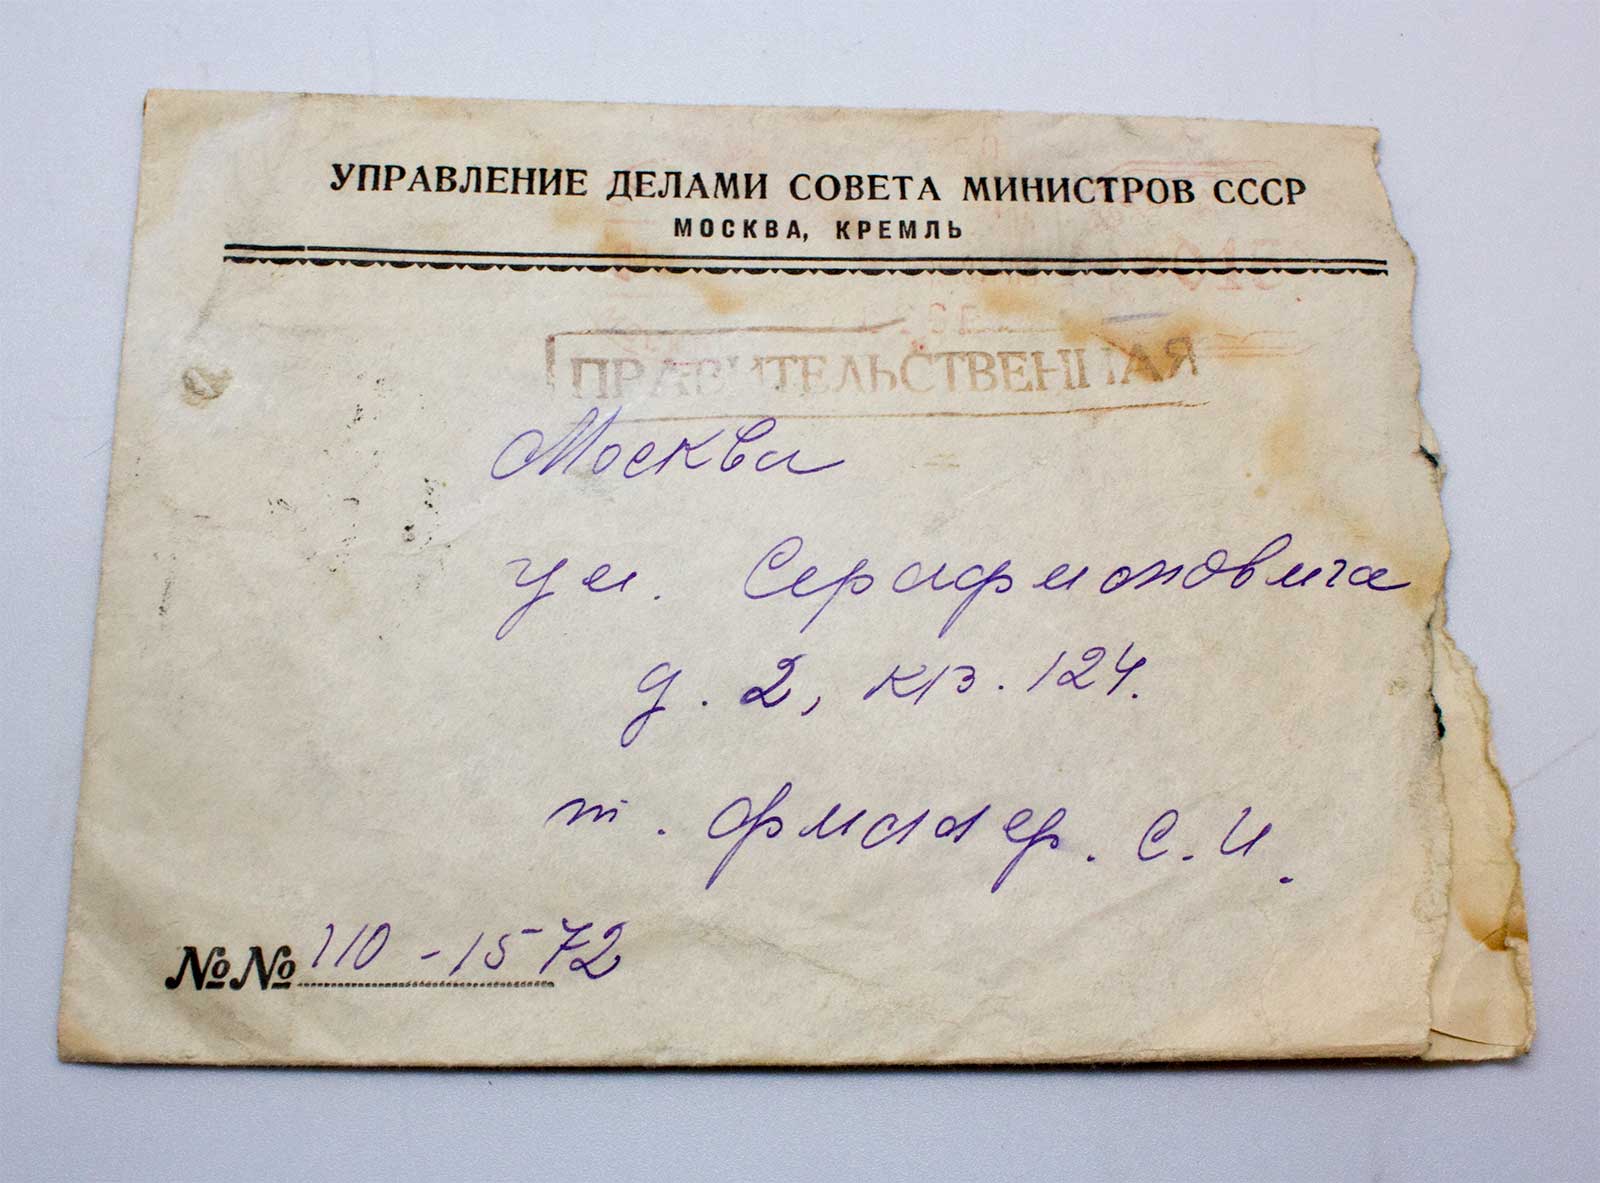 УПРАВЛЕНИЕ ДЕЛАМИ СОВЕТА МИНИСТРОВ СССР
МОСКВА, КРЕМЛЬ
ПРАВИТЕЛЬСТВЕННАЯ
Москва
ул. Серафимовича
д. 2, кв. 124.
т. С. И.
№№ 110-1572